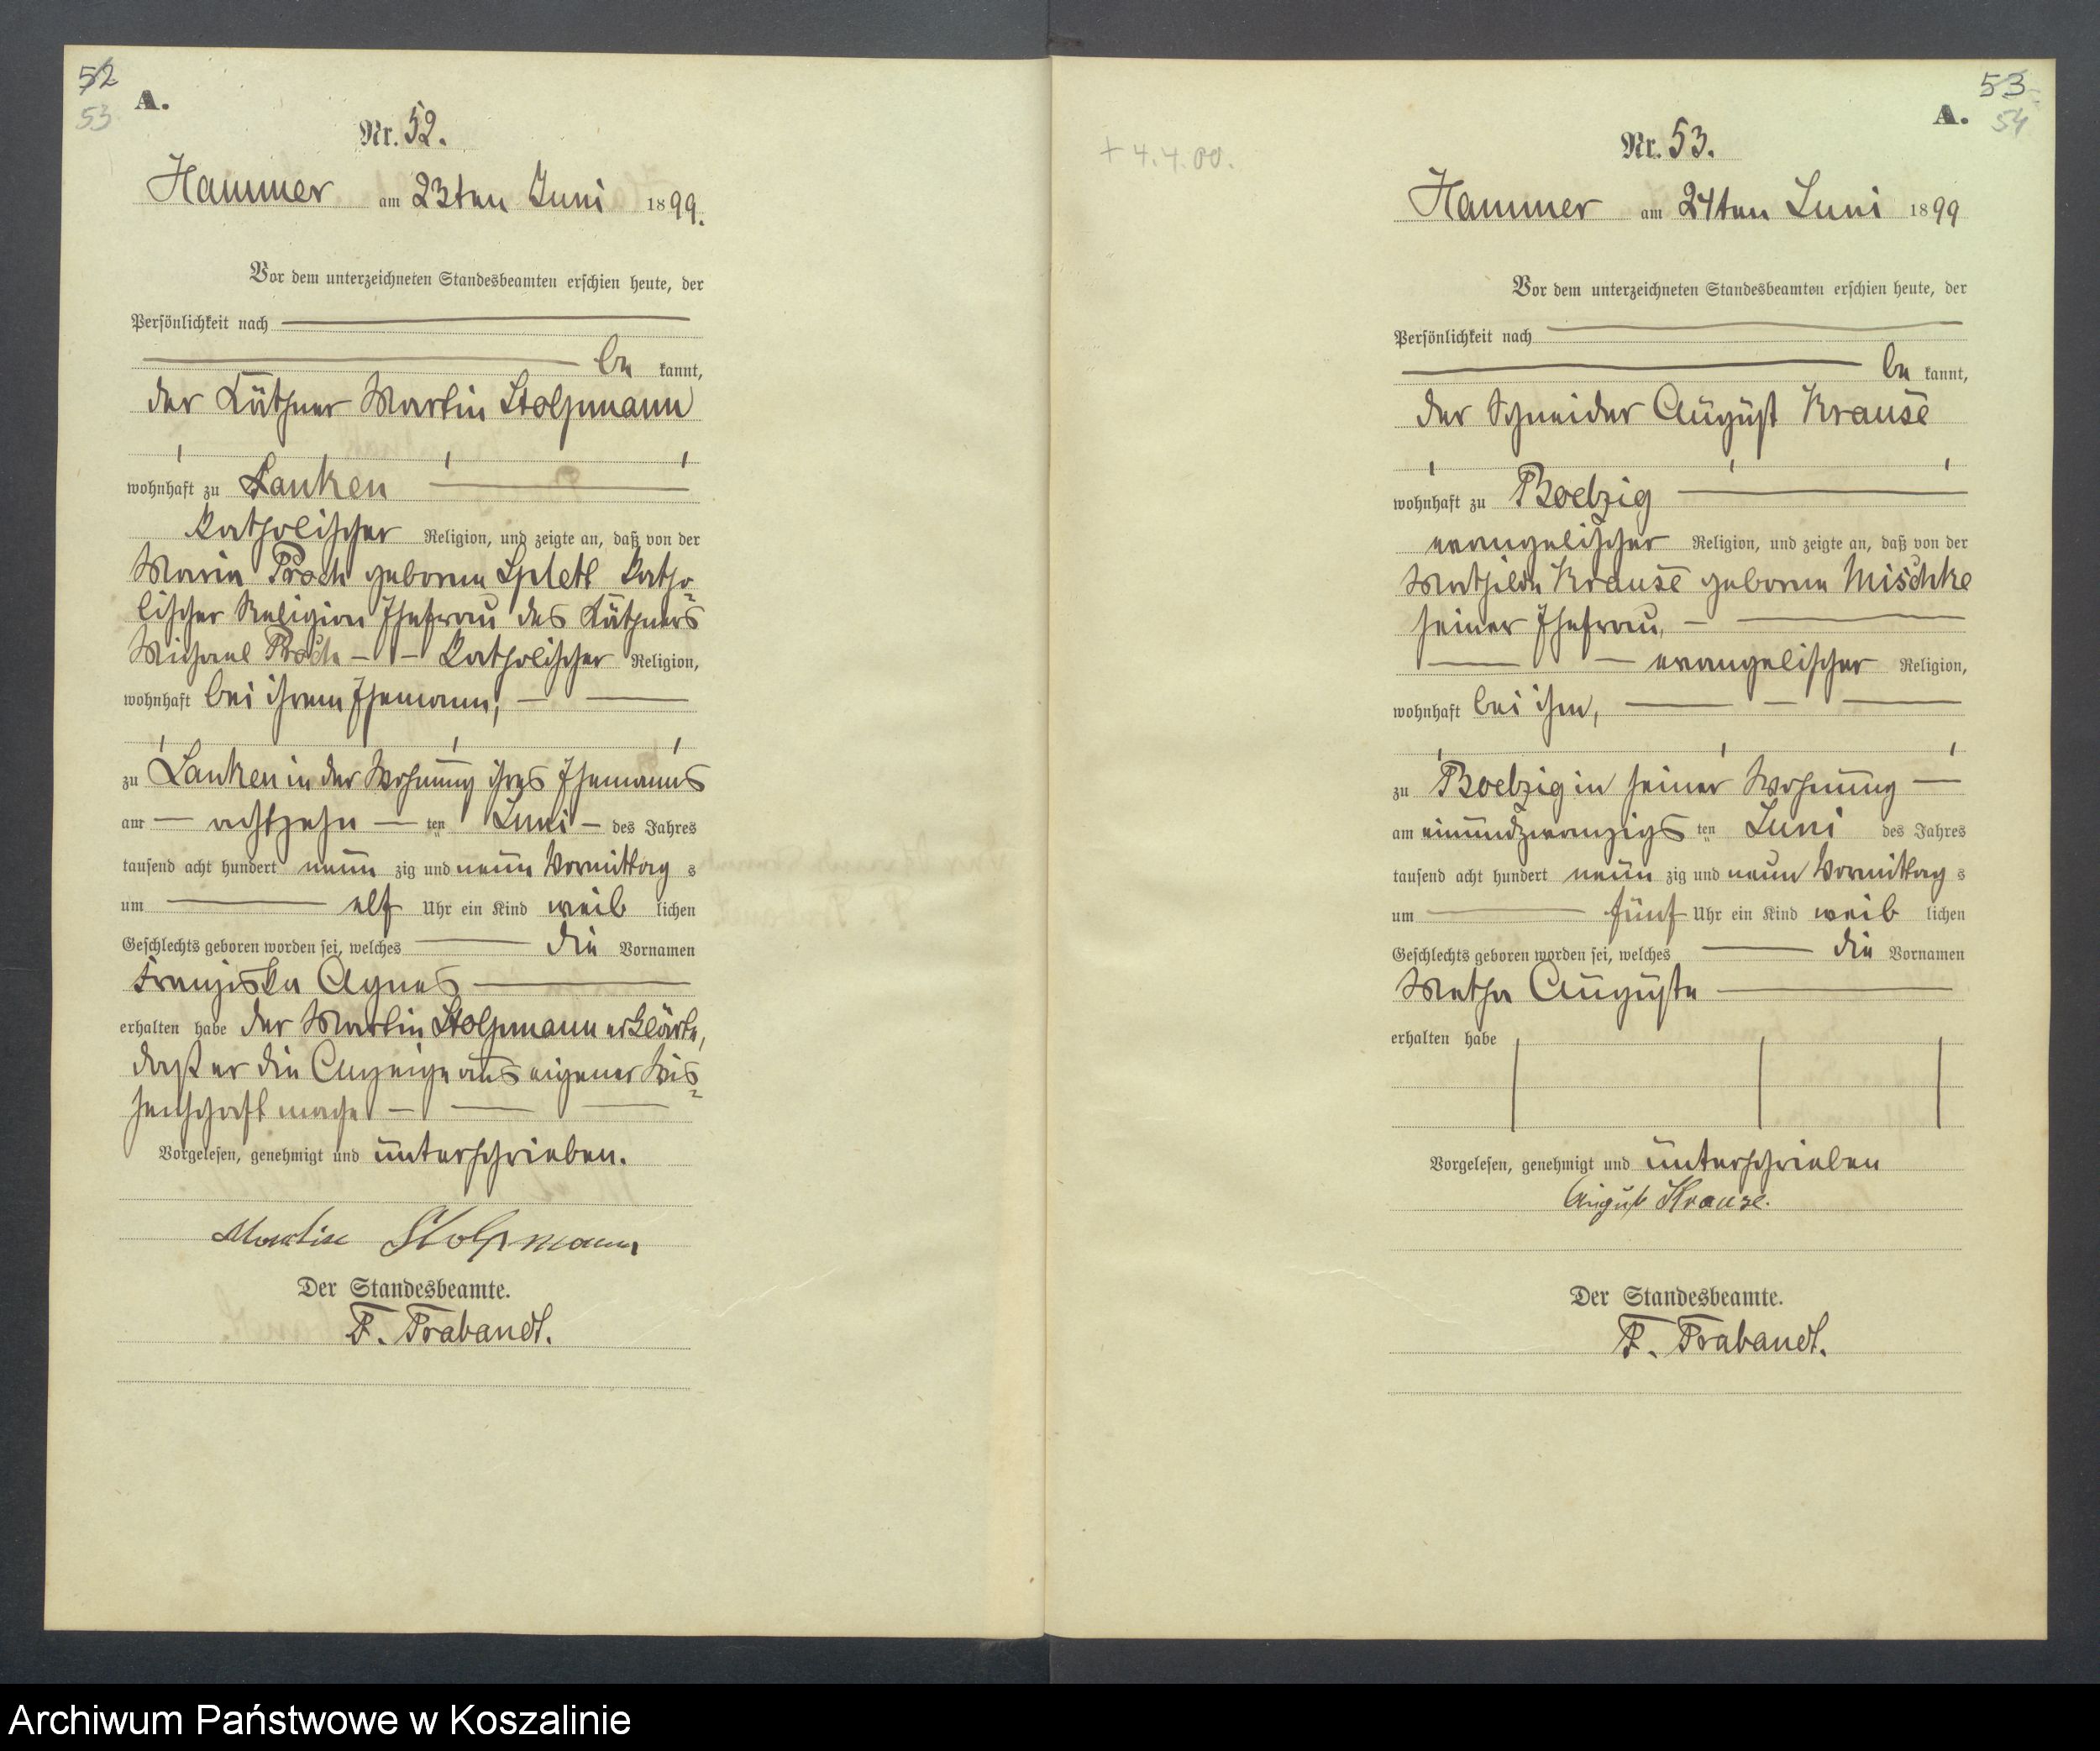 52
53
A.
Nr. 52.
Hammer am 23ten Juni 1899.
Vor dem unterzeichneten Standesbeamten erschien heute, der
Persönlichkeit nach
be kannt,
der Käthner Martin Stolpmann
wohnhaft zu Lanken
katholischer Religion, und zeigte an, daß von der
Maria Proch geborene Splett katho-
lischer Religion Ehefrau des Käthners
Michael Proch katholischer Religion,
wohnhaft bei ihrem Ehemann,
zu Lanken in der Wohnung ihres Ehemanns
am achtzehn ten Juni des Jahres
tausend acht hundert neun zig und neun Vormittag s
um elf Uhr ein Kind weib lichen
Geschlechts geboren worden sei, welches die Vornamen
Franziska Agnes
erhalten habe der Martin Stolpmann erklärte,
daß er die Anzeige aus eigener Wis-
senschaft mache
Vorgelesen, genehmigt und unterschrieben.
Martin Stolpmann
Der Standesbeamte.
F. Trabandt.
53
54
A.
+ 4.4.00.
Nr. 53.
Hammer am 24ten Juni 1899
Vor dem unterzeichneten Standesbeamten erschien heute, der
Persönlichkeit nach
be kannt,
der Schneider August Krause
wohnhaft zu Boelzig
evangelischer Religion, und zeigte an, daß von der
Mathilde Krause geborene Mischke
seiner Ehefrau,
evangelischer Religion,
wohnhaft bei ihm,
zu Boelzig in seiner Wohnung
am einundzwanzigs ten Juni des Jahres
tausend acht hundert neun zig und neun Vormittag s
um fünf Uhr ein Kind weib lichen
Geschlechts geboren worden sei, welches die Vornamen
Metha Auguste
erhalten habe
Vorgelesen, genehmigt und unterschrieben
August Krause.
Der Standesbeamte.
F. Trabandt.
Archiwum Państwowe w Koszalinie